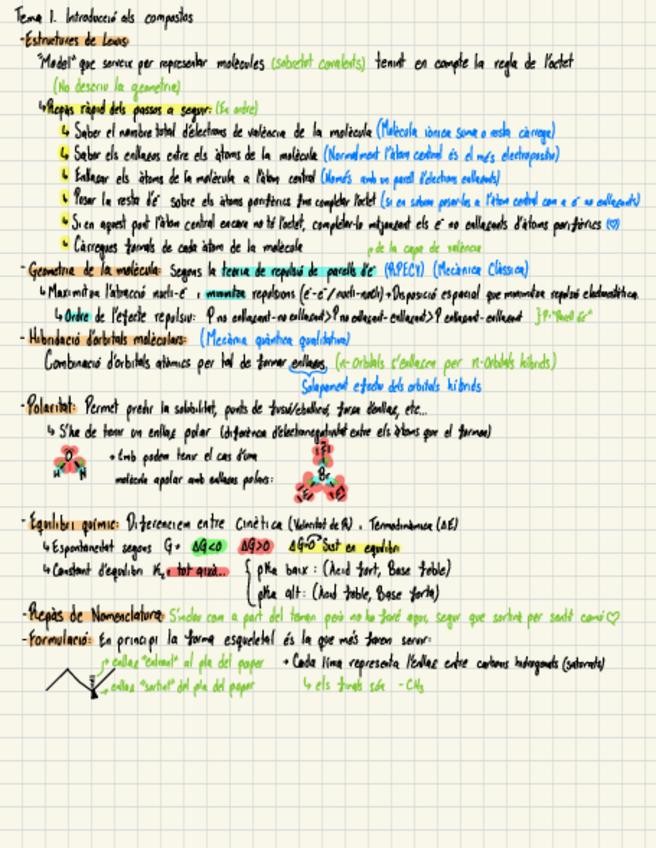 Tema 1. Introducció als compostos
- Estructures de Lewis
"Model" que serveix per representar molècules (sobretot covalents) tenint en compte la regla de l'octet
(No descriu la geometria)
↳ Repàs ràpid dels passos a seguir: (En ordre)
↳ Saber el nombre total d'electrons de valència de la molècula (Molècula iònica suma o resta càrrega)
↳ Saber els enllaços entre els àtoms de la molècula (Normalment l'àtom central és el més electropositiu)
↳ Enllaçar els àtoms de la molècula a l'àtom central (Només amb un parell d'electrons enllaçants)
↳ Posar la resta d'e⁻ sobre els àtoms perifèrics fins completar l'octet (si en sobren posar-los a l'àtom central com a e⁻ no enllaçants)
↳ Si en aquest punt l'àtom central encara no té l'octet, completar-lo mitjançant els e⁻ no enllaçants d'àtoms perifèrics (♡)
↳ Càrregues formals de cada àtom de la molècula
de la capa de valència
- Geometria de la molècula: Segons la teoria de repulsió de parells d'e⁻ (RPECV) (Mecànica Clàssica)
↳ Maximitza l'atracció nucli-e⁻ i minimitza repulsions (e⁻-e⁻/nucli-nucli) → Disposició espacial que minimitza repulsió electrostàtica.
↳ Ordre de l'efecte repulsiu: P no enllaçant-no enllaçant > P no enllaçant-enllaçant > P enllaçant-enllaçant } P: "Parell de e⁻"
- Hibridació d'orbitals moleculars: (Mecànica quàntica qualitativa)
Combinació d'orbitals atòmics per tal de formar enllaços (n-Orbitals s'enllacen per n-Orbitals híbrids)
Solapament efectiu dels orbitals híbrids
- Polaritat: Permet predir la solubilitat, punts de fusió/ebullició, força d'enllaç, etc...
↳ S'ha de tenir un enllaç polar (diferència d'electronegativitat entre els àtoms que el formen)
O H H
→ Emb podem tenir el cas d'una
molècula apolar amb enllaços polars:
Br
- Equilibri químic: Diferenciem entre Cinètica (Velocitat de Rx) i Termodinàmica (ΔE)
↳ Espontaneïtat segons G → ΔG<0 ΔG>0 ΔG=0 → Sist en equilibri
↳ Constant d'equilibri tot això...
pKa baix: (Àcid fort, Base feble)
pKa alt: (Àcid feble, Base forta)
- Repàs de Nomenclatura: S'inclou com a part del temari però no ho faré aquí, segur que sortirà per sentit comú ♡
- Formulació: En principi la forma esqueletal és la que més farem servir:
enllaç "entrant" al pla del paper
→ Cada línia representa l'enllaç entre carbonis hidrogenats (saturats)
enllaç "sortint" del pla del paper
↳ els finals són -CH₃